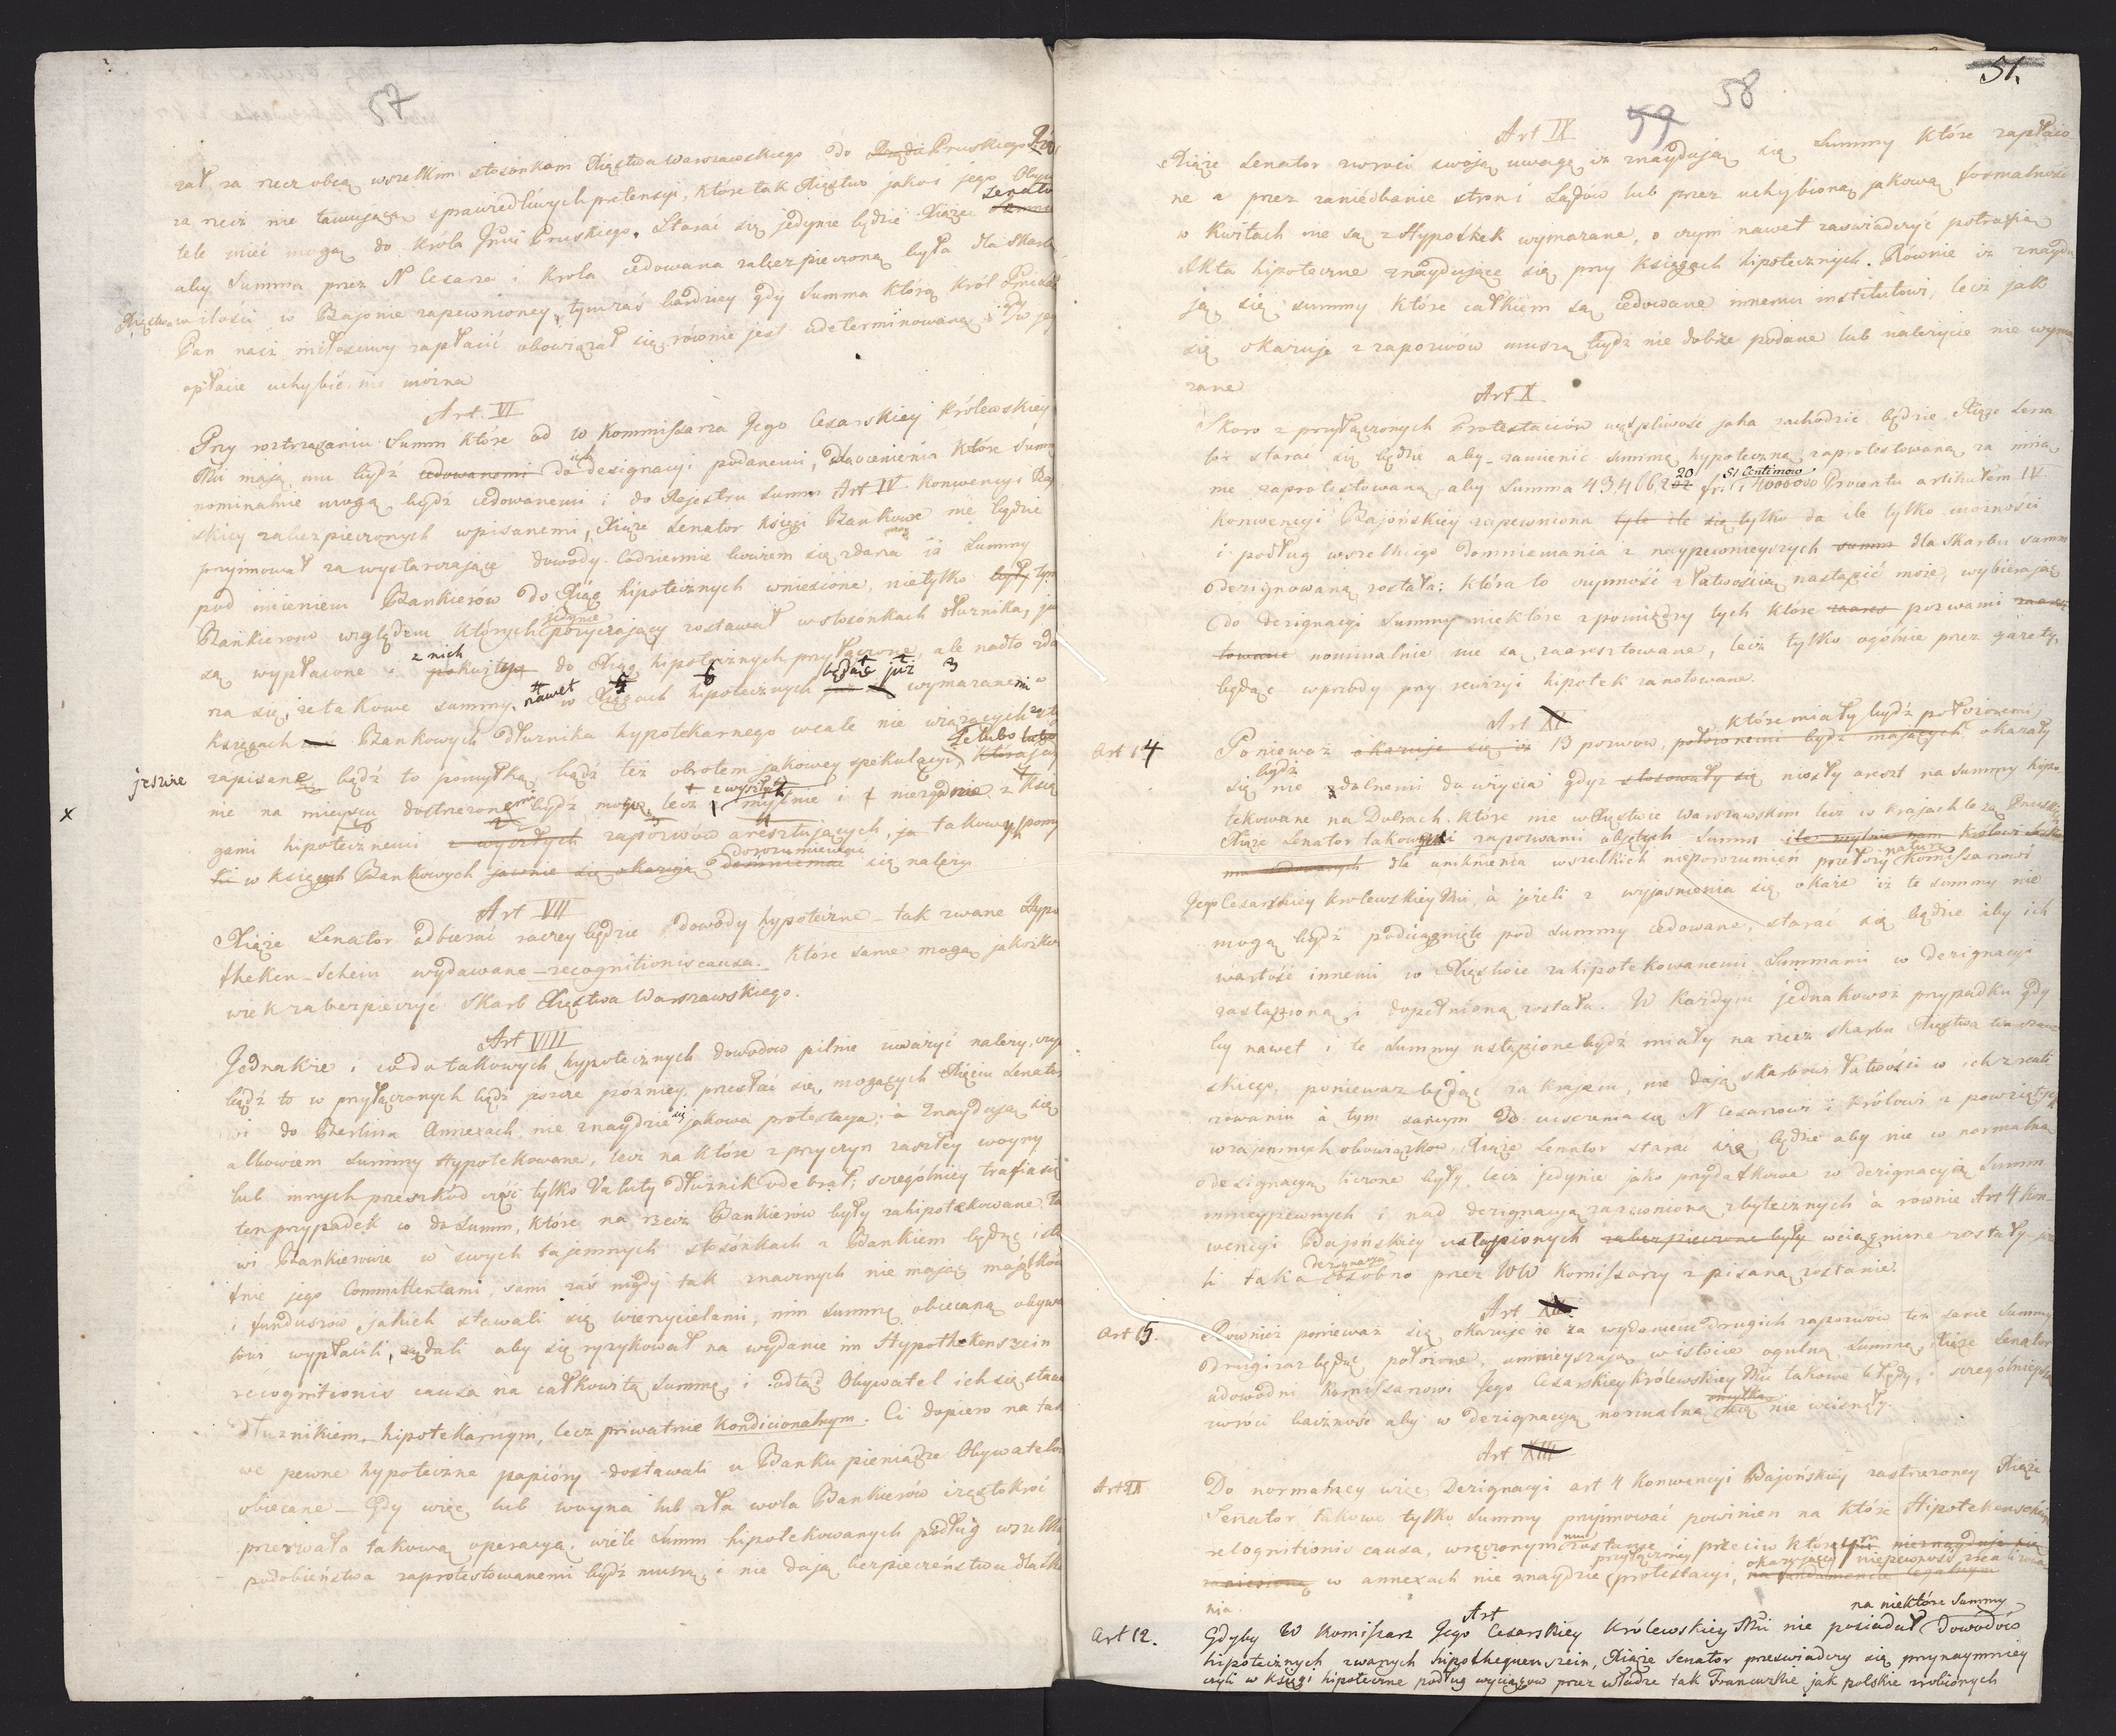 57
zał za rzecz obcą wszelkim stosunkom Xięstwa Warszawskiego do Rządu Pruskiego
za rzecz nie tamującą sprawiedliwych pretensyi, które tak Xięstwo jako i jego
tele mieć mogą do Króla Jmci Pruskiego. Starać się jedynie będzie Xiąże Senator
aby Summa przez N Cesarza i Króla cedowana zabezpieczoną była dla Skarbu
Xięstwa w ilości w Bajonie zapewnioney, tymczas bardziey gdy Summa którą Król Pruski
Pan nasz miłościwy zapłacić obowiązał się, równie jest udeterminowana i w jey
opłacie uchybić nie można
Art. VI
Przy roztrząsaniu Summ które od W Kommissarza Jego Cesarskiey Królewskiey
Mci mają mu bydź cedowanemi do designacyi podanemi, dla ocenienia które Summy
nominalnie mogą bydź cedowanemi i do Rejestru Summ Art IV Konwencyi
skiey zabezpieczonych wpisanemi, Xiąże Senator księgi Bankowe nie będzie
przyimował za wystarczające dowody. Codziennie bowiem się zdarza iż Summy
pod imieniem Bankierów do Xiąg hipotecznych wniesione, nietylko były tym
Bankierom względem których jedynie pożyczający zostawał w stosunkach dłużnika,
są wypłacone i z nich pokwitują do Xiąg hipotecznych przyłączone, ale nadto zda
rza się, że takowe summy, nawet w Xięgach hipotecznych będąc już wymazanemi w
Księgach Bankowych dłużnika hypotekarnego wcale nie wiążących
jeszcze zapisane bądź to pomyłką, bądź też obrotem jakowey spekulacyi
nie na mieyscu dostrzeżonemi bydź mogą, lecz z wyszłych myślnie i niezgodnie z Księ
x gami hipotecznemi z wyszłych zapozwów aresztujących, takowych pomy
łki w księgach Bankowych jawnie się okazują dorozumiewać domniemać się należy.
Art VII
Xiąże Senator odbierać raczey będzie dowody hypoteczne tak zwane Hypo
theken-Schein wydawane recognitionis causa. Które same mogą jakożkol
wiek zabezpieczyć Skarb Xięstwa Warszawskiego.
Art VIII
Jednakże i co do takowych hypotecznych dowodow pilnie uważyć należy, czy
bądź to w przyłączonych bądź jeszcze pózniey przesłać się mogących Xięciu Senato
wi do Berlina Annexach nie znaydzie się jakowa protestacya; a znaydują się
albowiem summy Hypotekowane, lecz na które z przyczyn zaszłey woyny
lub innych przeszkód część tylko Valuty dłużnik odebrał; szczególniey trafia się
ten przypadek co do Summ, które na rzecz Bankierów były zahipotekowane
wi Bankierowie w swych tajemnych stosunkach z Bankiem będąc
tnie jego Committentami, sami zaś nigdy tak znacznych nie mając majątków
i funduszów jakich stawali się wierzycielami, nim summę obiecaną obywa
lowi wypłacili, żądali aby się ryzykował na wydanie im Hypothekenschein
recognitionis causa na całkowitą summę, i odtąd Obywatel ich się stawał
Dłużnikiem hipotekarnym, lecz priwatnie Kondicionalnym. Ci dopiero na tak
we pewne hypoteczne papiéry dostawali u Banku pieniądze Obywatelow
obiecane. Gdy więc lub woyna lub zła wola Bankierów częstokroć
przerwała takową operacyą, wiele Summ hipotekowanych podług wszelki
podobieństwa zaprotestowanemi bydź muszą i nie dają bezpieczeństwa dla
51.
58
59
Art IX
Xiąże Senator zwróci swoją uwagę iż znaydują się Summy które zapłaco
ne a przez zaniedbanie stron i Sądów lub przez uchybioną jakową formalność
w kwitach nie są z Hypothek wymazane, o czym nawet zaświadczyć potrafią
Akta hipoteczne znaydujące się przy Księgach hipotecznych. Równie iż znaydu
ją się summy które całkiem są cedowane innemu institutowi, lecz jak
się okazuje z zapozwów muszą bydź nie dobrze podane lub należycie nie wyma
zane
Art X
Skoro z przyłączonych Protestaciów wątpliwość jaka zachodzić będzie Xiąże Sena
tor starać się będzie aby zamienić summę hypoteczną zaprotestowaną za inną
nie zaprotestowaną, aby Summa 43,466,220 fr. 51 Centimow i 4000000 Procentu artikułem IV
Konwencyi Bajońskiey zapewniona tyle ile się tylko da ile tylko możności
i podług wszelkiego domniemania z naypewnieyszych summ dla Skarbu summ
dezignowaną została: która to czynność z łatwością nastąpić może, wybierając
do dezignacyi Summy niektóre z pomiędzy tych które pozwami
nominalnie nie są zaaresztowane, lecz tylko ogólnie przez gazety,
będąc wprzódy przy rewizyi hipotek zanotowane.
Art XI
które miały bydź położonemi,
Art 14 Ponieważ okazuje się iż 13 pozwów, położonemi bydź mających, okazały
się bydź nie zdolnemi do użycia gdyż stosowały się niosły areszt na Summy hipo
tekowane na Dobrach, które nie w Xięstwie Warszawskim lecz w krajach
Xiąże Senator takowych zapozwami objętych Summ
dla uniknienia wszelkich nieporozumień przełoży naturę Komissarzowi
Jego Cesarskiey Krolewskiey Mci, a jeżeli z wyjasnienia się okaże iż te summy nie
mogą bydź podciągnięte pod summy cedowane, starać się będzie aby ich
wartość innemi w Xięstwie zahipotekowanemi Summami w dezignacyi
zastąpiona i dopełnioną została. W każdym jednakowoż przypadku gdy
by nawet i te Summy ustąpione bydź miały na rzecz Skarbu Xięstwa Warszaw
skiego, ponieważ będąc za krajem, nie dają Skarbowi łatwości w ich zreali
zowaniu a tym samym do uiszczenia się N Cesarzowi i Królowi z powziętych
wzajemnych obowiązkow, Xiąże Senator starać się będzie aby nie w normalną
designacyą liczone były, lecz jedynie jako przydatkowe w dezignacyą Summ
mniey pewnych i nad dezignacyą zapewnioną zbytecznych a równie Art 4 Kon
wencyi Bajońskiey ustąpionych zabezpieczone były wciągnione zostały je
li taka dezignacya osobno przez WW Komissarzy spisana zostanie.
Art XII
Art 15. Rownież ponieważ się okazuje że za wydaniem drugich zapozwów te same Summy
drugi raz będąc położone, umnieyszają w istocie ogulną summę, Xiąże Senator
udowodni Komissarzowi Jego Cesarskiey Królewskiey Mci takowe błędy, i szczególnieyszą
zwróci baczność aby w dezignacyą normalną omyłką się nie wcisnęły.
Art XIII
Art 11 Do normalney więc Dezignacyi art 4 Konwencyi Bajońskiey zastrzeżoney Xiąże
Senator takowe tylko Summy przyimować powinien na które Hipotekenschein
recognitionis causa, wręczonym mu zostanie i przeciw którym nieznayduje się
zaniesiona w annexach nie znaydzie przyłączoney protestacyi, okazującey niepewność realizowa
na fundamencie legalnym
nia.
Art
na niektóre Summy
Art 12. Gdyby W Komissarz Jego Cesarskiey Królewskiey Mci nie posiadał dowodów
hipotecznych zwanych hipothequenszein, Xiąże Senator przeswiadczy się przynaymniey
czyli w księgi hipoteczne podług wyciągow przez władze tak Francuzkie jak polskie zrobionych